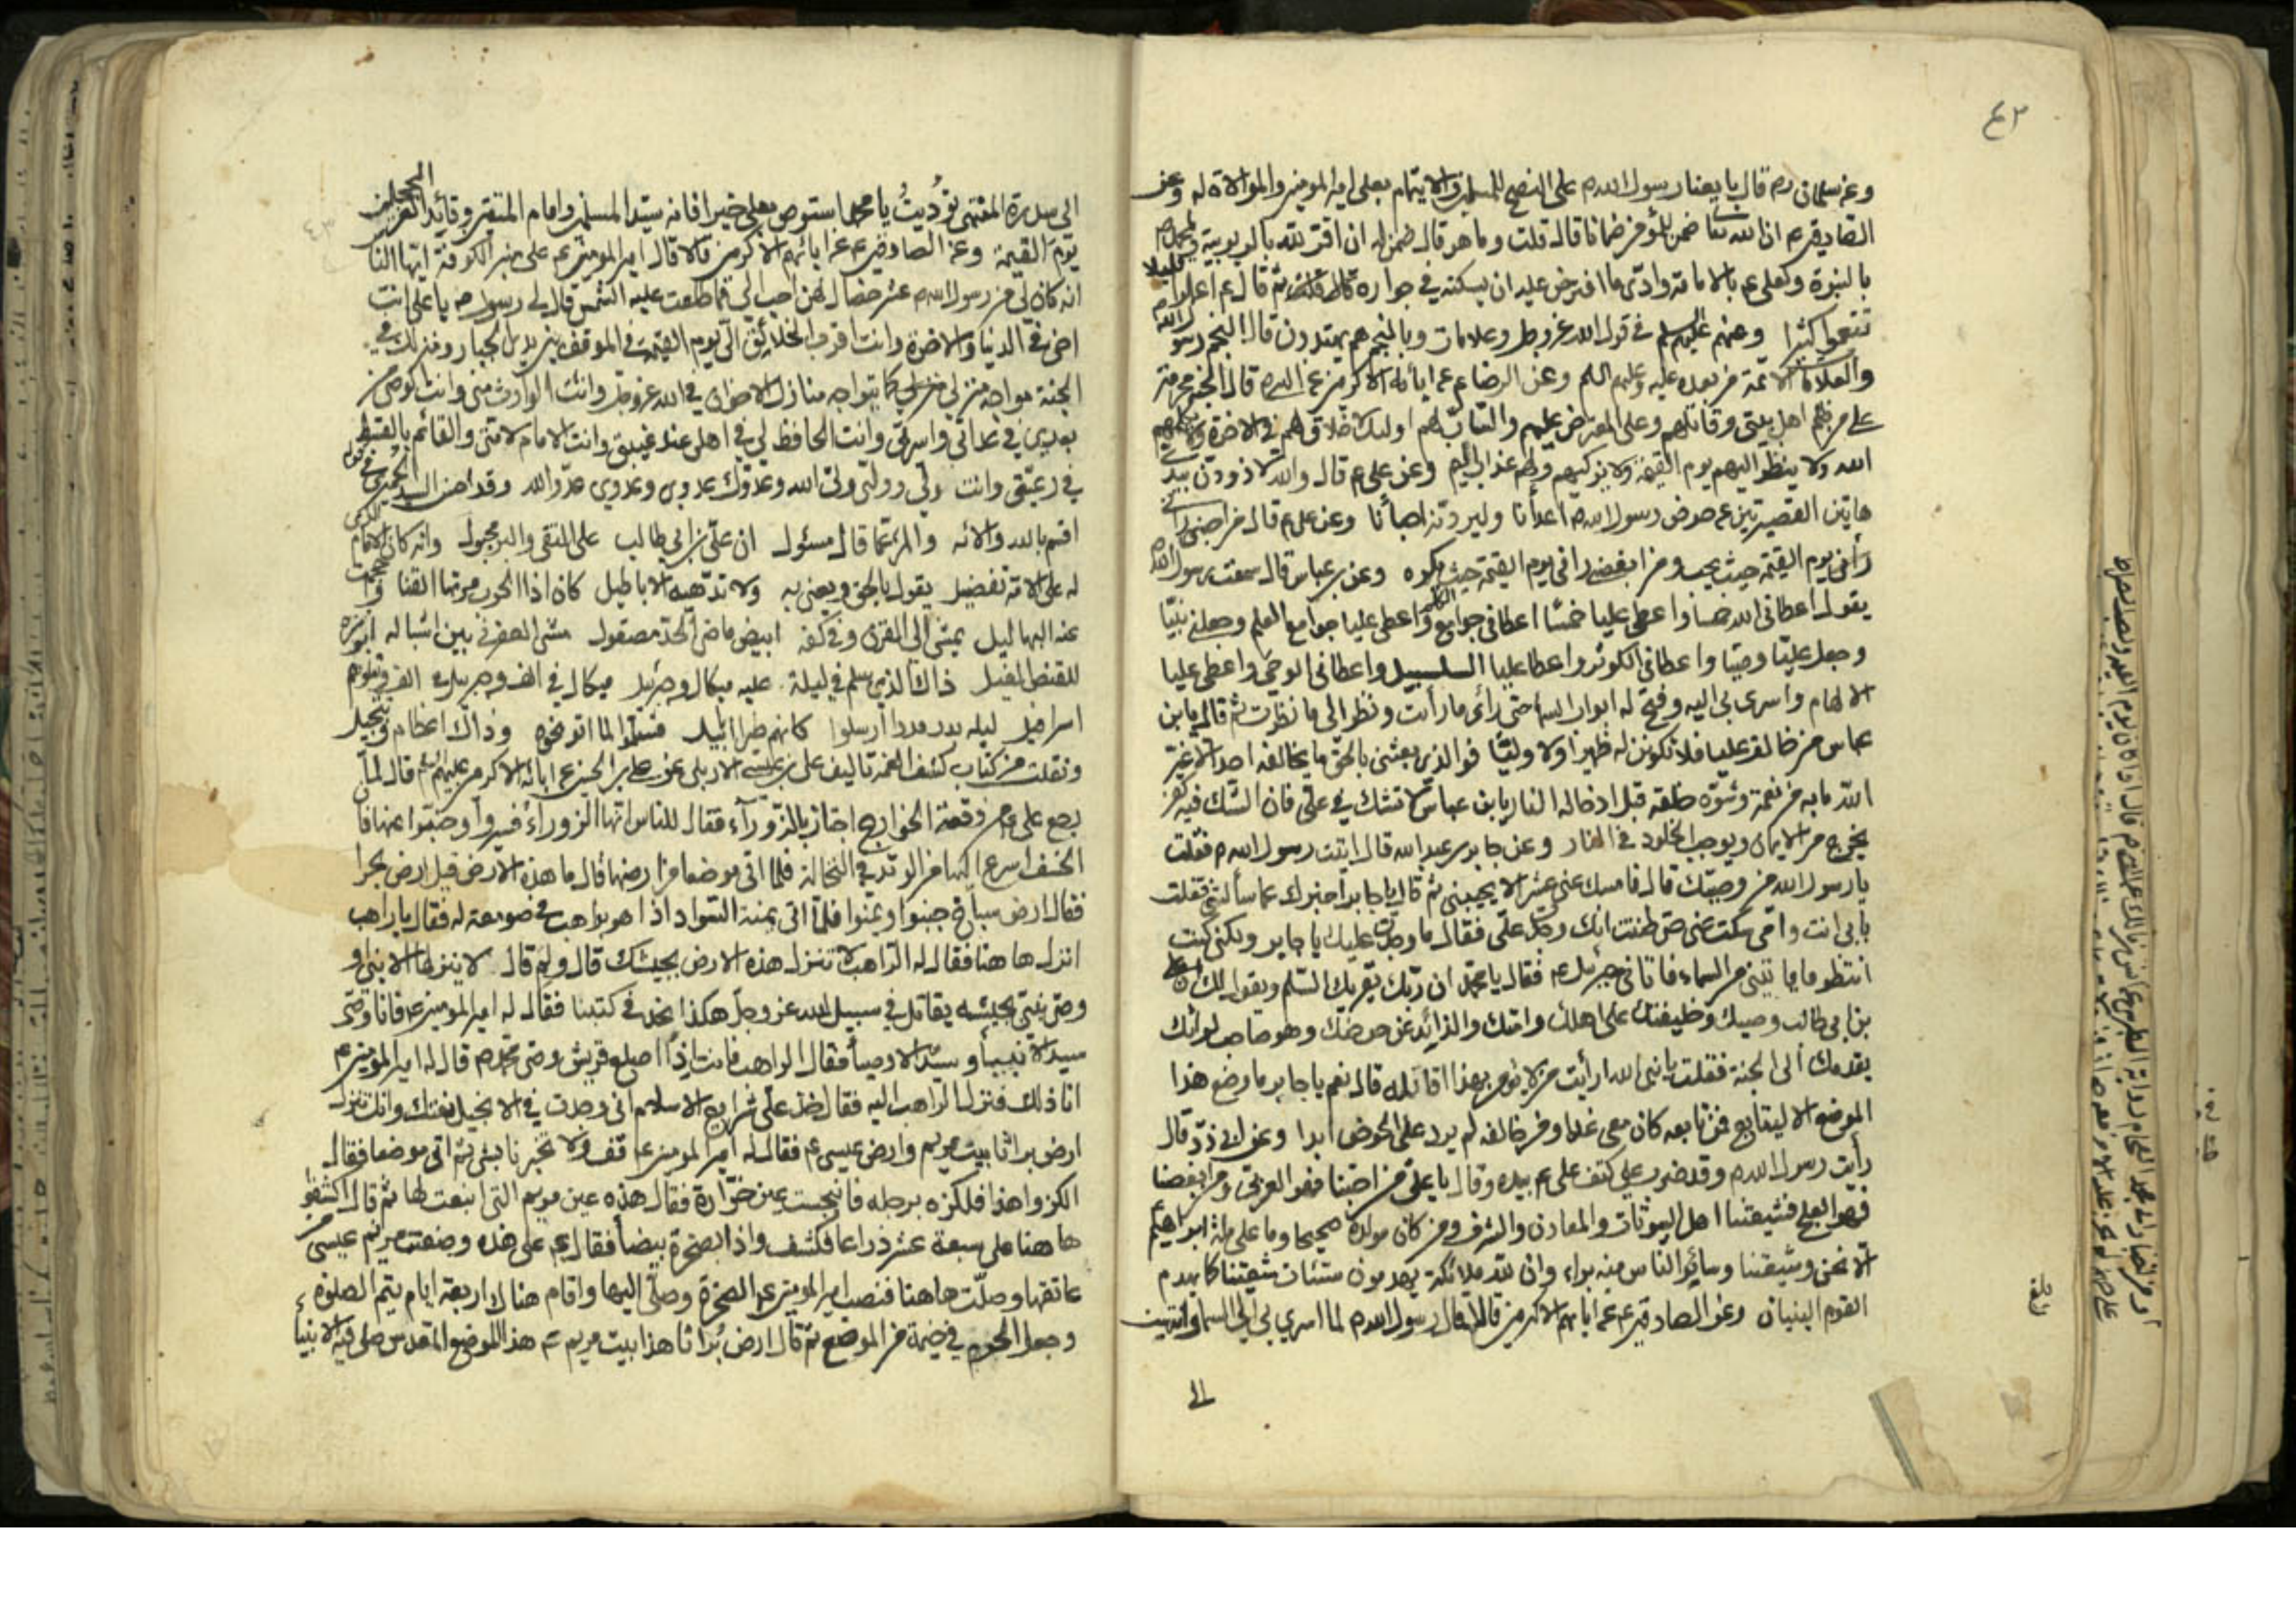 ٤٣
وعن سلمان ره قال بايعنا رسول الله ص على النصح للمسلمين والايتمام بعلي امير المومنين والموالاة له وعن
الصادق ع ان الله تعا ضمن للمؤمن ضمانا قال قلت وما هو قال ضمن له ان اقر لله بالربوبية ولمحمد ص
بالنبوة ولعلي ع بالامامة وادى ما افترض عليه ان يسكنه في جواره ثم قال ع اعملوا قليلا
تنعموا كثيرا وعنهم عليهم السلم في قول الله عز وجل وعلامات وبالنجم هم يهتدون قال النجم رسول الله
والعلامات الائمة من بعده عليه وعليهم السلم وعن الرضا ع عن ابائه الاكرمين عن النبي ص قال الجنة محرمة
على من ظلم اهل بيتي وقاتلهم وعلى المعترض عليهم والساب لهم اولئك لا خلاق لهم في الاخرة ولا يكلمهم
الله ولا ينظر اليهم يوم القيمة ولا يزكيهم ولهم عذاب اليم وعن علي ع قال والله لاذودن بيدي
هاتين القصيرتين عن حوض رسول الله ص اعدأنا وليردنه احبأنا وعن علي ع قال من احبني
رأني يوم القيمة حيث يحب ومن ابغضني رأني يوم القيمة حيث يكره وعن بن عباس قال سمعت رسول الله ص
يقول اعطاني الله خمسا واعطى عليا خمسا اعطاني جوامع الكلم واعطى عليا جوامع العلم وجعلني نبيا
وجعل عليا وصيا واعطاني الكوثر واعطا عليا السلسبيل واعطاني الوحي واعطى عليا
الالهام واسرى بي اليه وفتح له ابواب السما حتى رأى ما رأيت ونظر الى ما نظرت ثم قال يا بن
عباس من خالف عليا فلا تكونن له ظهيرا ولا وليا فوالذي بعثني بالحق ما يخالفه احد الا غير
الله ما به من نعمة وشوه خلقه قبل ادخاله النار يا بن عباس لا تشك في علي فان الشك فيه كفر
يخرج من الايمان ويوجب الخلود في النار وعن جابر بن عبد الله قال اتيت رسول الله ص فقلت
يا رسول الله من وصيك قال فامسك عني عشرا لا يجيبني ثم قال يا جابر اخبرك عما سألتني فقلت
بابي انت وامي سكت عني حتى ظننت انك وجدت علي فقال ما وجدت عليك يا جابر ولكني كنت
انتظر ما يأتيني من السماء فاتاني جبرئيل ع فقال يا محمد ان ربك يقريك السلم ويقول لك ان علي
بن ابي طالب وصيك وخليفتك على اهلك وامتك والذائد عن حوضك وهو صاحب لوائك
يقدمك الى الجنة فقلت يا نبي الله ارأيت من لا يؤمن بهذا اقاتله قال نعم يا جابر ما وضع هذا
الموضع الا ليتابع فمن تابعه كان معي غدا ومن خالفه لم يرد على الحوض ابدا وعن ابي ذر قال
رأيت رسول الله ص وقد ضرب على كتف علي ع بيده وقال يا علي من احبنا فهو العربي ومن ابغضنا
فهو العلج فشيعتنا اهل البيوتات والمعادن والشرف ومن كان مولده صحيحا وما على ملة ابراهيم
الا نحن وشيعتنا وسائر الناس منه براء وان لله ملائكة يهدمون سيئات شيعتنا كما يهدم
القوم البنيان وعن الصادق ع عن ابائهم الاكرمين قال قال رسول الله ص لما اسري بي الى السما وانتهيت
الى
الى سدرة المنتهى نوديت يا محمد استوص بعلي خيرا فانه سيد المسلمين وامام المتقين وقائد الغر المحجلين
يوم القيمة وعن الصادق ع عن ابائهم الاكرمين قال قال امير المومنين ع على منبر الكوفة ايها الناس
انه كان لي من رسول الله ص عشر خصال لهن احب الي مما طلعت عليه الشمس قال لي رسول الله يا علي انت
اخي في الدنيا والاخرة وانت اقرب الخلائق الي يوم القيمة في الموقف بين يدي الجبار ومنزلك في
الجنة مواجه منزلي كما يتواجه منازل الاخوان في الله عز وجل وانت الوارث مني وانت الوصي من
بعدي في عداتي واسرتي وانت الحافظ لي في اهلي عند غيبتي وانت الامام لامتي والقائم بالقسط
في رعيتي وانت وليي ووليي ولي الله وعدوك عدوي وعدوي عدو الله وقد احسن السيد الحميري في قوله
اقسم بالله والائه والمرء عما قال مسئول ان علي بن ابي طالب على التقى والبر مجبول وانه كان الامام الذي
له على الامة تفضيل يقول بالحق ويعني به ولا تلهيه الاباطيل كان اذا الحرب مرتها القنا واحجمت
عنها البهاليل يمشي الى القرن وفي كفه ابيض ماضي الحد مصقول مشي العفرنى بين اشباله ابرزه
للقنص الغيل ذاك الذي سلم في ليلة عليه ميكال وجبريل ميكال في الف وجبريل في الف ويتلوهم
اسرافيل ليلة بدر مددا ارسلوا كانهم طير ابابيل فسلموا لما اتوا نحوه وذاك اعظام وتبجيل
ونقلت من كتاب كشف الغمة تاليف علي بن عيسى الاربلي عن علي بن الحسين عن ابائه الاكرمين عليهم السلم قال لما
رجع علي ع من وقعة الخوارج اجتاز بالزوراء فقال للناس انها الزوراء فسيروا وجنبوا عنها فان
الخسف اسرع اليها من الوتد في النخالة فلما اتى موضعا من ارضها قال ما هذه الارض قيل ارض بحرا
فقال ارض سباخ جنبوا ويمنوا فلما اتى يمنة السواد اذا هو براهب في صومعة له فقال يا راهب
انزل ها هنا فقال له الراهب لا تنزل هذه الارض بجيشك قال ولم قال لانه لا ينزلها الا نبي او
وصي نبي بجيشه يقاتل في سبيل الله عز وجل هكذا نجد في كتبنا فقال له امير المومنين ع فانا وصي
سيد الانبياء وسيد الاوصياء فقال الراهب فانت اذا اصلع قريش وصي محمد ص قال له امير المومنين ع
انا ذلك فنزل الراهب اليه فقال خذ علي شرايع الاسلام اني وجدت في الانجيل نعتك وانك تنزل
ارض براثا بيت مريم وارض عيسى ع فقال له امير المومنين ع قف ولا تخبرنا بشيء ثم اتى موضعا فقال
الكزوا هذا فلكزه برجله فانبجست عين خرارة فقال هذه عين مريم التي انبعت لها ثم قال اكشفوا
ها هنا على سبعة عشر ذراعا فكشف واذا بصخرة بيضأ فقال ع على هذه وضعت مريم عيسى من
عاتقها وصلت ها هنا فنصب امير المومنين ع الصخرة وصلى اليها واقام هناك اربعة ايام يتم الصلوة
وجعل الحرم في خيمة من الموضع ثم قال ارض براثا هذا بيت مريم ع هذا الموضع المقدس صلى فيه الانبيأ